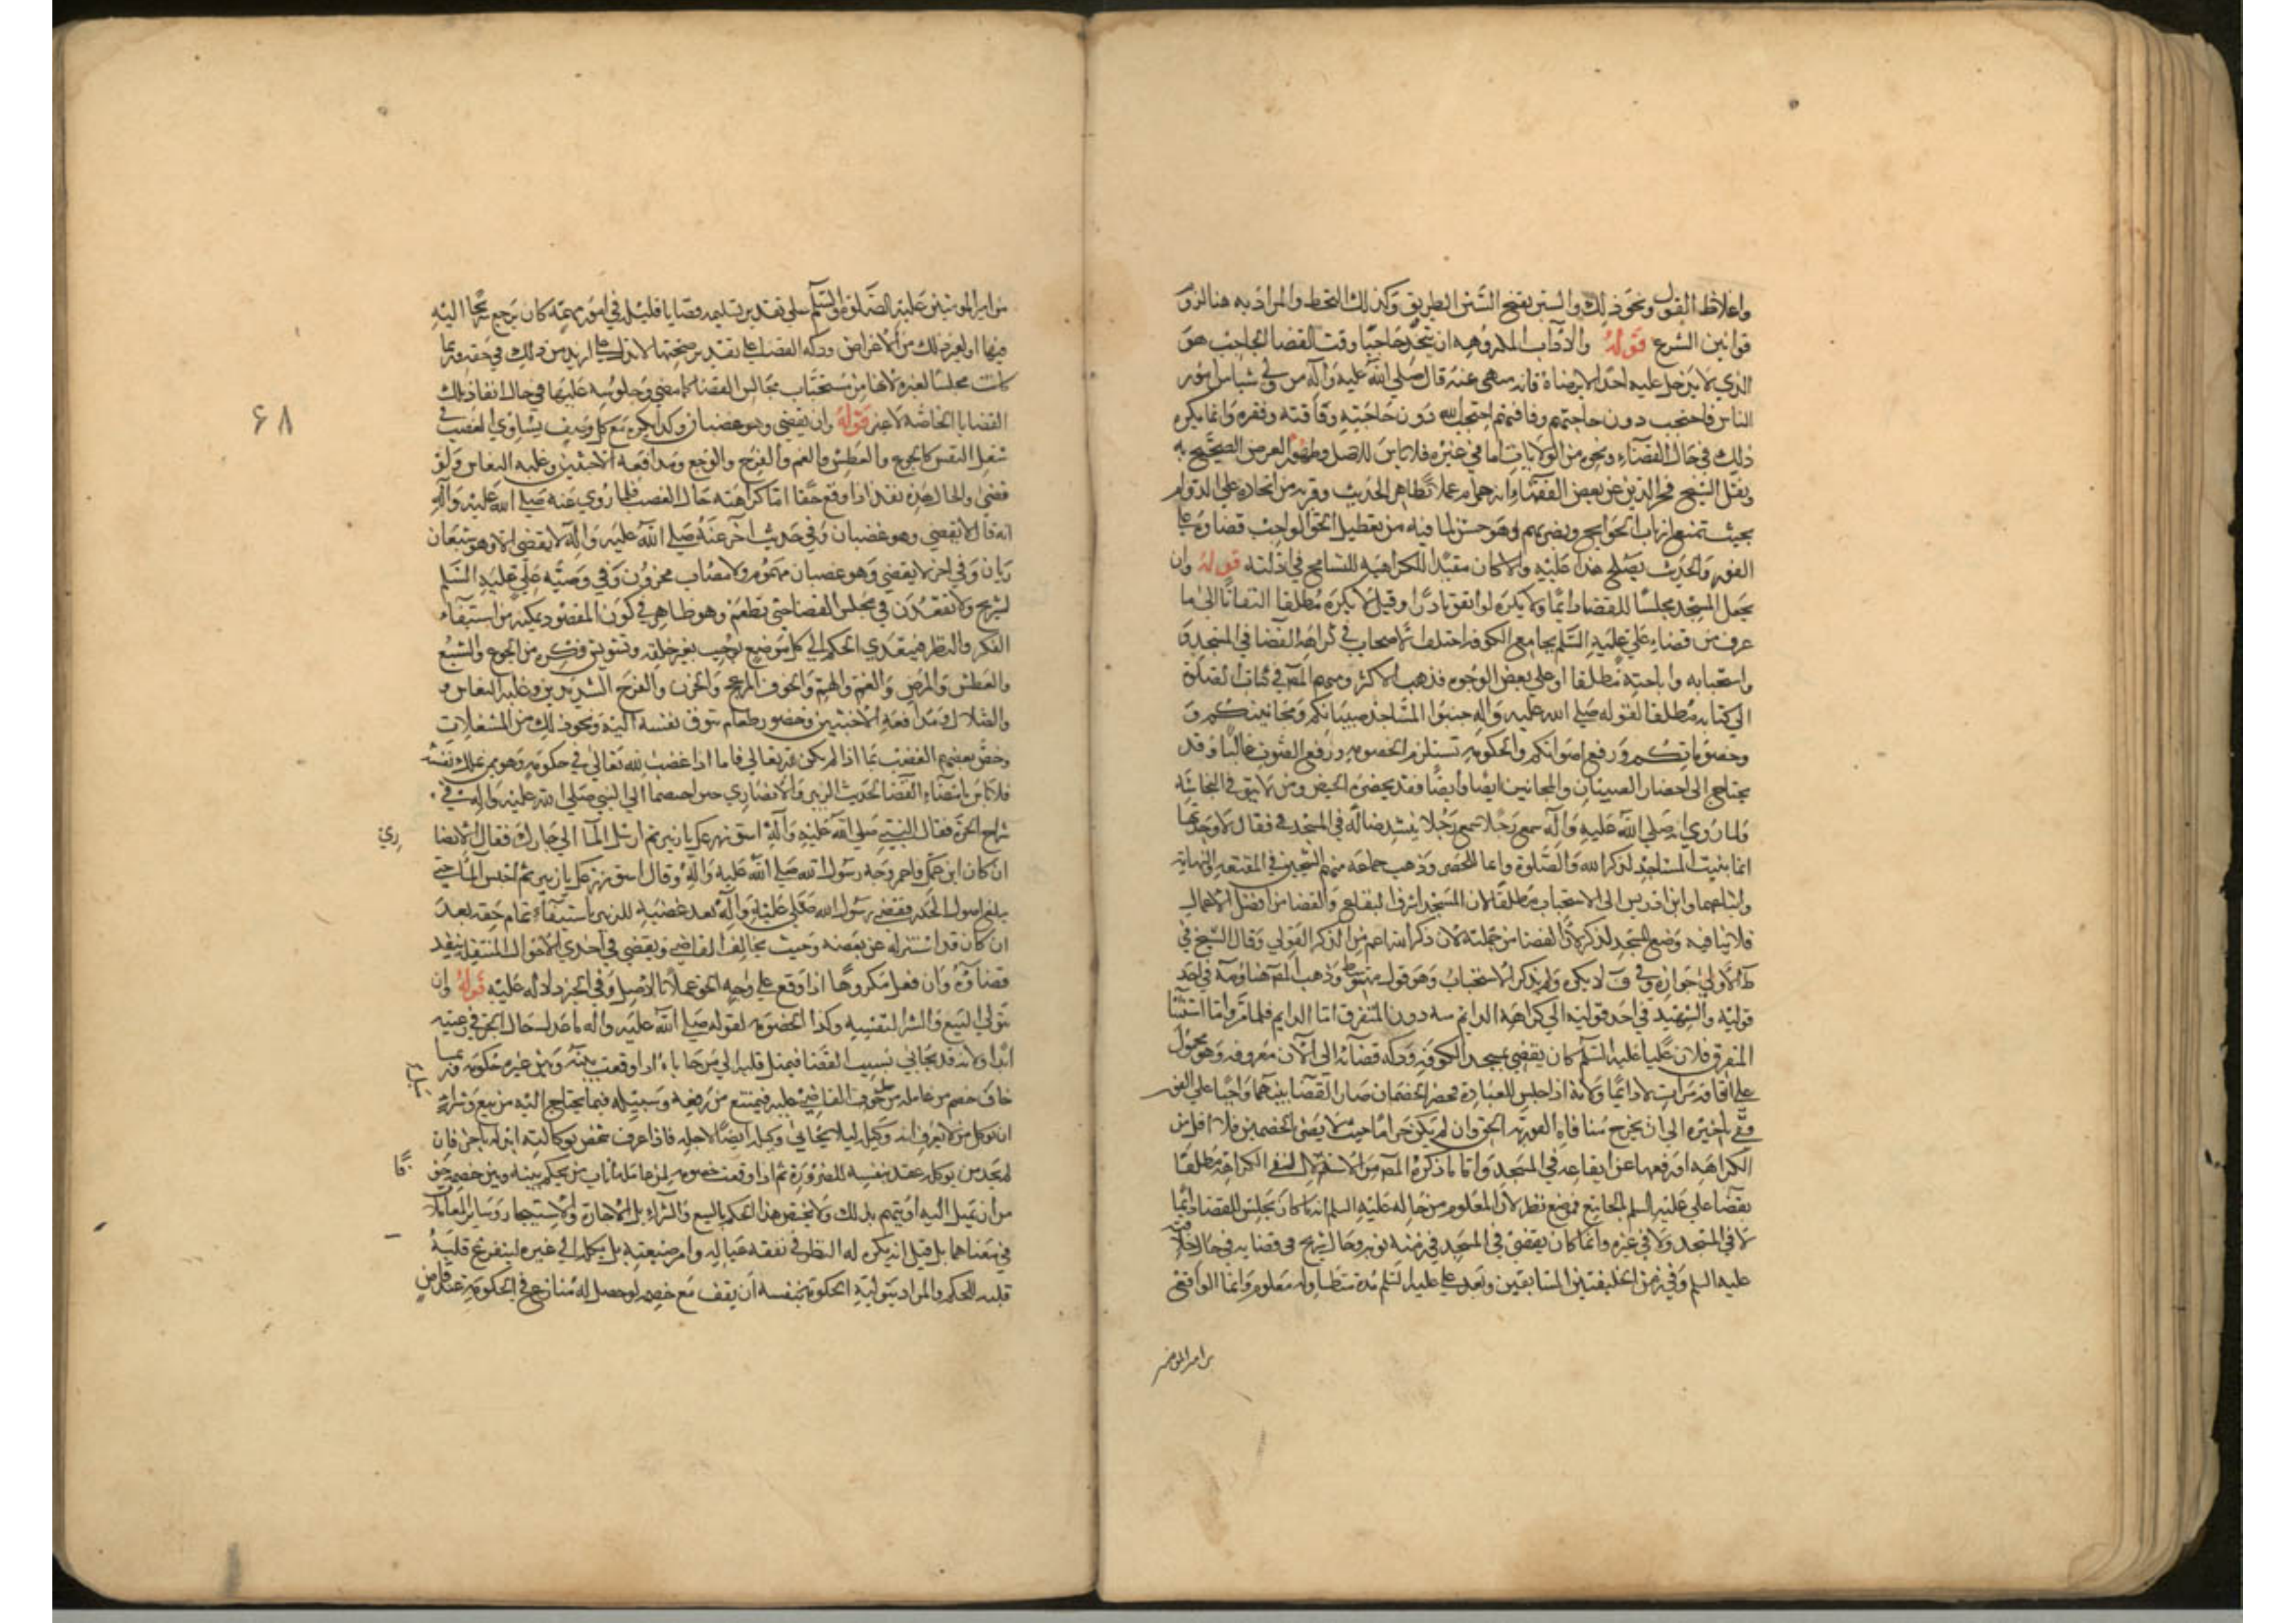 واغلاظ القول ونحو ذلك والسنن بفتح السنن الطريق وكذلك النحط والمراد به هنا لزوم
قوانين الشرع قوله والاداب المكروهة ان يتخذ حاجبا وقت القضا الحاجب هو
الذي لا يدخل عليه احد الا برضاه فانه منهي عنه قال صلى الله عليه وآله من ولي شيا من امور
الناس فاحتجب دون حاجتهم وفاقتهم احتجب الله دون حاجته وفاقته وفقره وانما يكره
ذلك في حال القضاء ونحوه من الولايات اما في غيره فلا باس للاصل العرض الصحيح به
ونقل الشيخ فخر الدين عن بعض الفقهاء انه حرام عملا بظاهر الحديث وقربه مع اتخاذه على الدوام
بحيث تمنع ارباب الحوايج ويضر بهم وهو حسن لما فيه من تعطيل الحق الواجب قضاوه على
الفور والحديث يصلح هذا عليه والا كان مفيدا للكراهية للتسامح في ادلته قوله وان
يجعل المسجد مجلسا للقضا دائما ولا يكره لو اتفق نادرا وقيل لا يكره مطلقا التفاتا الى ما
عرف من قضاء علي عليه السلم بجامع الكوفة اختلف الاصحاب في كراهة القضا في المسجد
واستحبابه واباحته مطلقا او على بعض الوجوه فذهب الاكثر ومنهم المصه في كتاب الصلوة
الى كتابه مطلقا لقوله صلى الله عليه وآله جنبوا المساجد صبيانكم ومجانينكم و
وخصوماتكم ورفع اصواتكم والحكومة تستلزم الخصومة ورفع الصوت غالبا وقد
يحتاج الى احضار الصبيان والمجانين ايضا وايضا فقد يحضره الحيض ومن لا يتوقى النجاسة
ولما روي انه صلى الله عليه وآله سمع رجلا سمع رجلا ينشد ضالة في المسجد فقال لا وجدتها
انما بنيت المساجد لذكر الله والصلوة وذهب جماعة منهم الشيخين في المقنعة والنهاية
واتباعهما وابن ادريس الى الاستحباب مطلقا لان المسجد اشرف البقاع والقضا من افضل الاعمال
فلا ينافيه وضع المسجد لذكر لان القضا من جملته لان ذكر الله اعم من الذكر القولي وقال الشيخ في
ط الاولى جوازه وفي ف لا يكره ولم يذكر الاستحباب وهو قول متوسط وذهب المصه هنا في احد
قوليه والشهيد في احد قوليه الى كراهة الدايم منه دون المتفرق اما الدايم فلما مر واما استثنا
المتفرق فلان عليا عليه السلم كان يقضي بمسجد الكوفة ودكة قضائه الى الآن معروفة وهو محمول
على اتفاقه مرات لا دائما ولانه اذا جلس للعبادة فحضر الخصمان صار القضا بينهما واجبا على الفور
وفي تاخيره الى ان يخرج منافاة الفورية الحق وان لم يكن حراما حيث لا يضر الخصمين فلا اقل من
الكراهة او رفعها عن ايقاعه في المسجد واما ما ذكره المصه من الاستدلال لنفي الكراهة مطلقا
بقضا علي عليه السلم بالجامع فموضع نظر لان المعلوم من حاله عليه السلم انه ما كان يجلس للقضا دائما
لا في المسجد ولا في غيره وانما كان يقضي في المسجد في زمنه نوبة وحال شريح في قضايه في حال خلافته
عليه السلم وفي زمن الخليفتين السابقين وبعد علي عليه السلم مدة متطاولة معلوم وانما الواقع
من امير المؤمنين
من امير المؤمنين عليه الصلوة والسلم على تقدير تسليمه قضايا قليلة في امور مهمة كان يرجع شريحا اليه
فيها او لغير ذلك من الاغراض ودكة القضا على تقدير صحتها لا تدل على ازيد من ذلك في حقه وربما
كانت مجلسا لغيره لانها من مستحباب مجالس القضا كما مضى وجلوسه عليها في حال انفاذ تلك
القضايا الخاصة لا غير قوله وان يقضي وهو غضبان وكذا يكره مع كل وصف يساوي الغضب في
شغل النفس كالجوع والعطش والغم والفرح والوجع ومدافعة الاخبثين وغلبة النعاس ولو
قضى والحال هذه نفذ اذا وقع حقا اما كراهته حال الغضب فلما روي عنه صلى الله عليه وآله
انه قال لا يقضي وهو غضبان وفي حديث آخر عنه صلى الله عليه وآله لا يقضي الا وهو شبعان
ريان وفي اخر لا يقضي وهو غضبان مهموم ولا مصاب محزون وفي وصية علي عليه السلم
لشريح ولا تقعدن في مجلس القضا حتى تطعم وهو ظاهر في كون المقصود تمكينه من استيفاء
الفكر والنظر فيتعدي الحكم الى كل موضع يوجب تغير خلقه وتشويش فكره من الجوع والشبع
والعطش والمرض والغم والهم والخوف المزعج والحزن والفرح الشديدين وغلبة النعاس و
والملال ومدافعة الاخبثين وحضور طعام تتوق نفسه اليه ونحو ذلك من المشغلات
وخص بعضهم الغضب بما اذا لم يكن لله تعالى فاما اذا غضب لله تعالى في حكومة وهو يملك نفسه
فلا باس بامضاء القضا لحديث الزبير والانصاري حين اختصما الى النبي صلى الله عليه وآله في
شراج الحرة فقال النبي صلى الله عليه وآله اسق زرعك يا زبير ثم ارسل الما الى جارك فقال الانصا
ري
ان كان ابن عمتك فاحمر وجه رسول الله صلى الله عليه وآله وقال اسق زرعك يا زبير ثم احبس الما حتى
يبلغ اصول الجدر فقضى رسول الله صلى عليه وآله بعد غضبه للزبير باستيفاء تمام حقه بعد
ان كان قد استنزله عن بعضه وحيث يخالف القاضي ويقضي في احدى الاحوال المشغلة ينفذ
قضاؤه وان فعل مكروها اذا وقع على وجه الحق عملا بالاصل وفي الخبر دلالة عليه قوله وان
يتولى البيع والشرا لنفسه وكذا الخصومة لقوله صلى الله عليه وآله ما عدل حال اتجر في رعيته
ابدا ولانه قد يحابى بسبب القضا فيميل قلبه الى من حاباه اذا وقعت بينه وبين غيره حكومة وربما
خاف خصم من عامله من ميل القاضي عليه فيمتنع من رفعه وسبيله فيما يحتاج اليه من بيع وشراء
ان يوكل من لا يعرف انه وكيله ليلا يحابى وكيله ايضا لاجله فاذا عرف شخص بوكالته ابدله باخر فان
لم يجد من يوكله عقد بنفسه للضرورة ثم اذا وقعت خصومة لمن عامله اناب من يحكم بينه وبين خصمه خوفا
من ان يميل اليه او يتهم بذلك ولا يختص هذا الحكم بالبيع والشراء بل الاجارة والاستيجار وسائر المعاملات
في معناهما بل قيل انه يكره له النظر في نفقة عياله وامر ضيعته بل يكله الى غيره ليتفرغ قلبه
قلبه للحكم والمراد بتولية الحكومة بنفسه ان يقف مع خصمه لو حصل له منازع في الحكومة عند قاض
۶۸